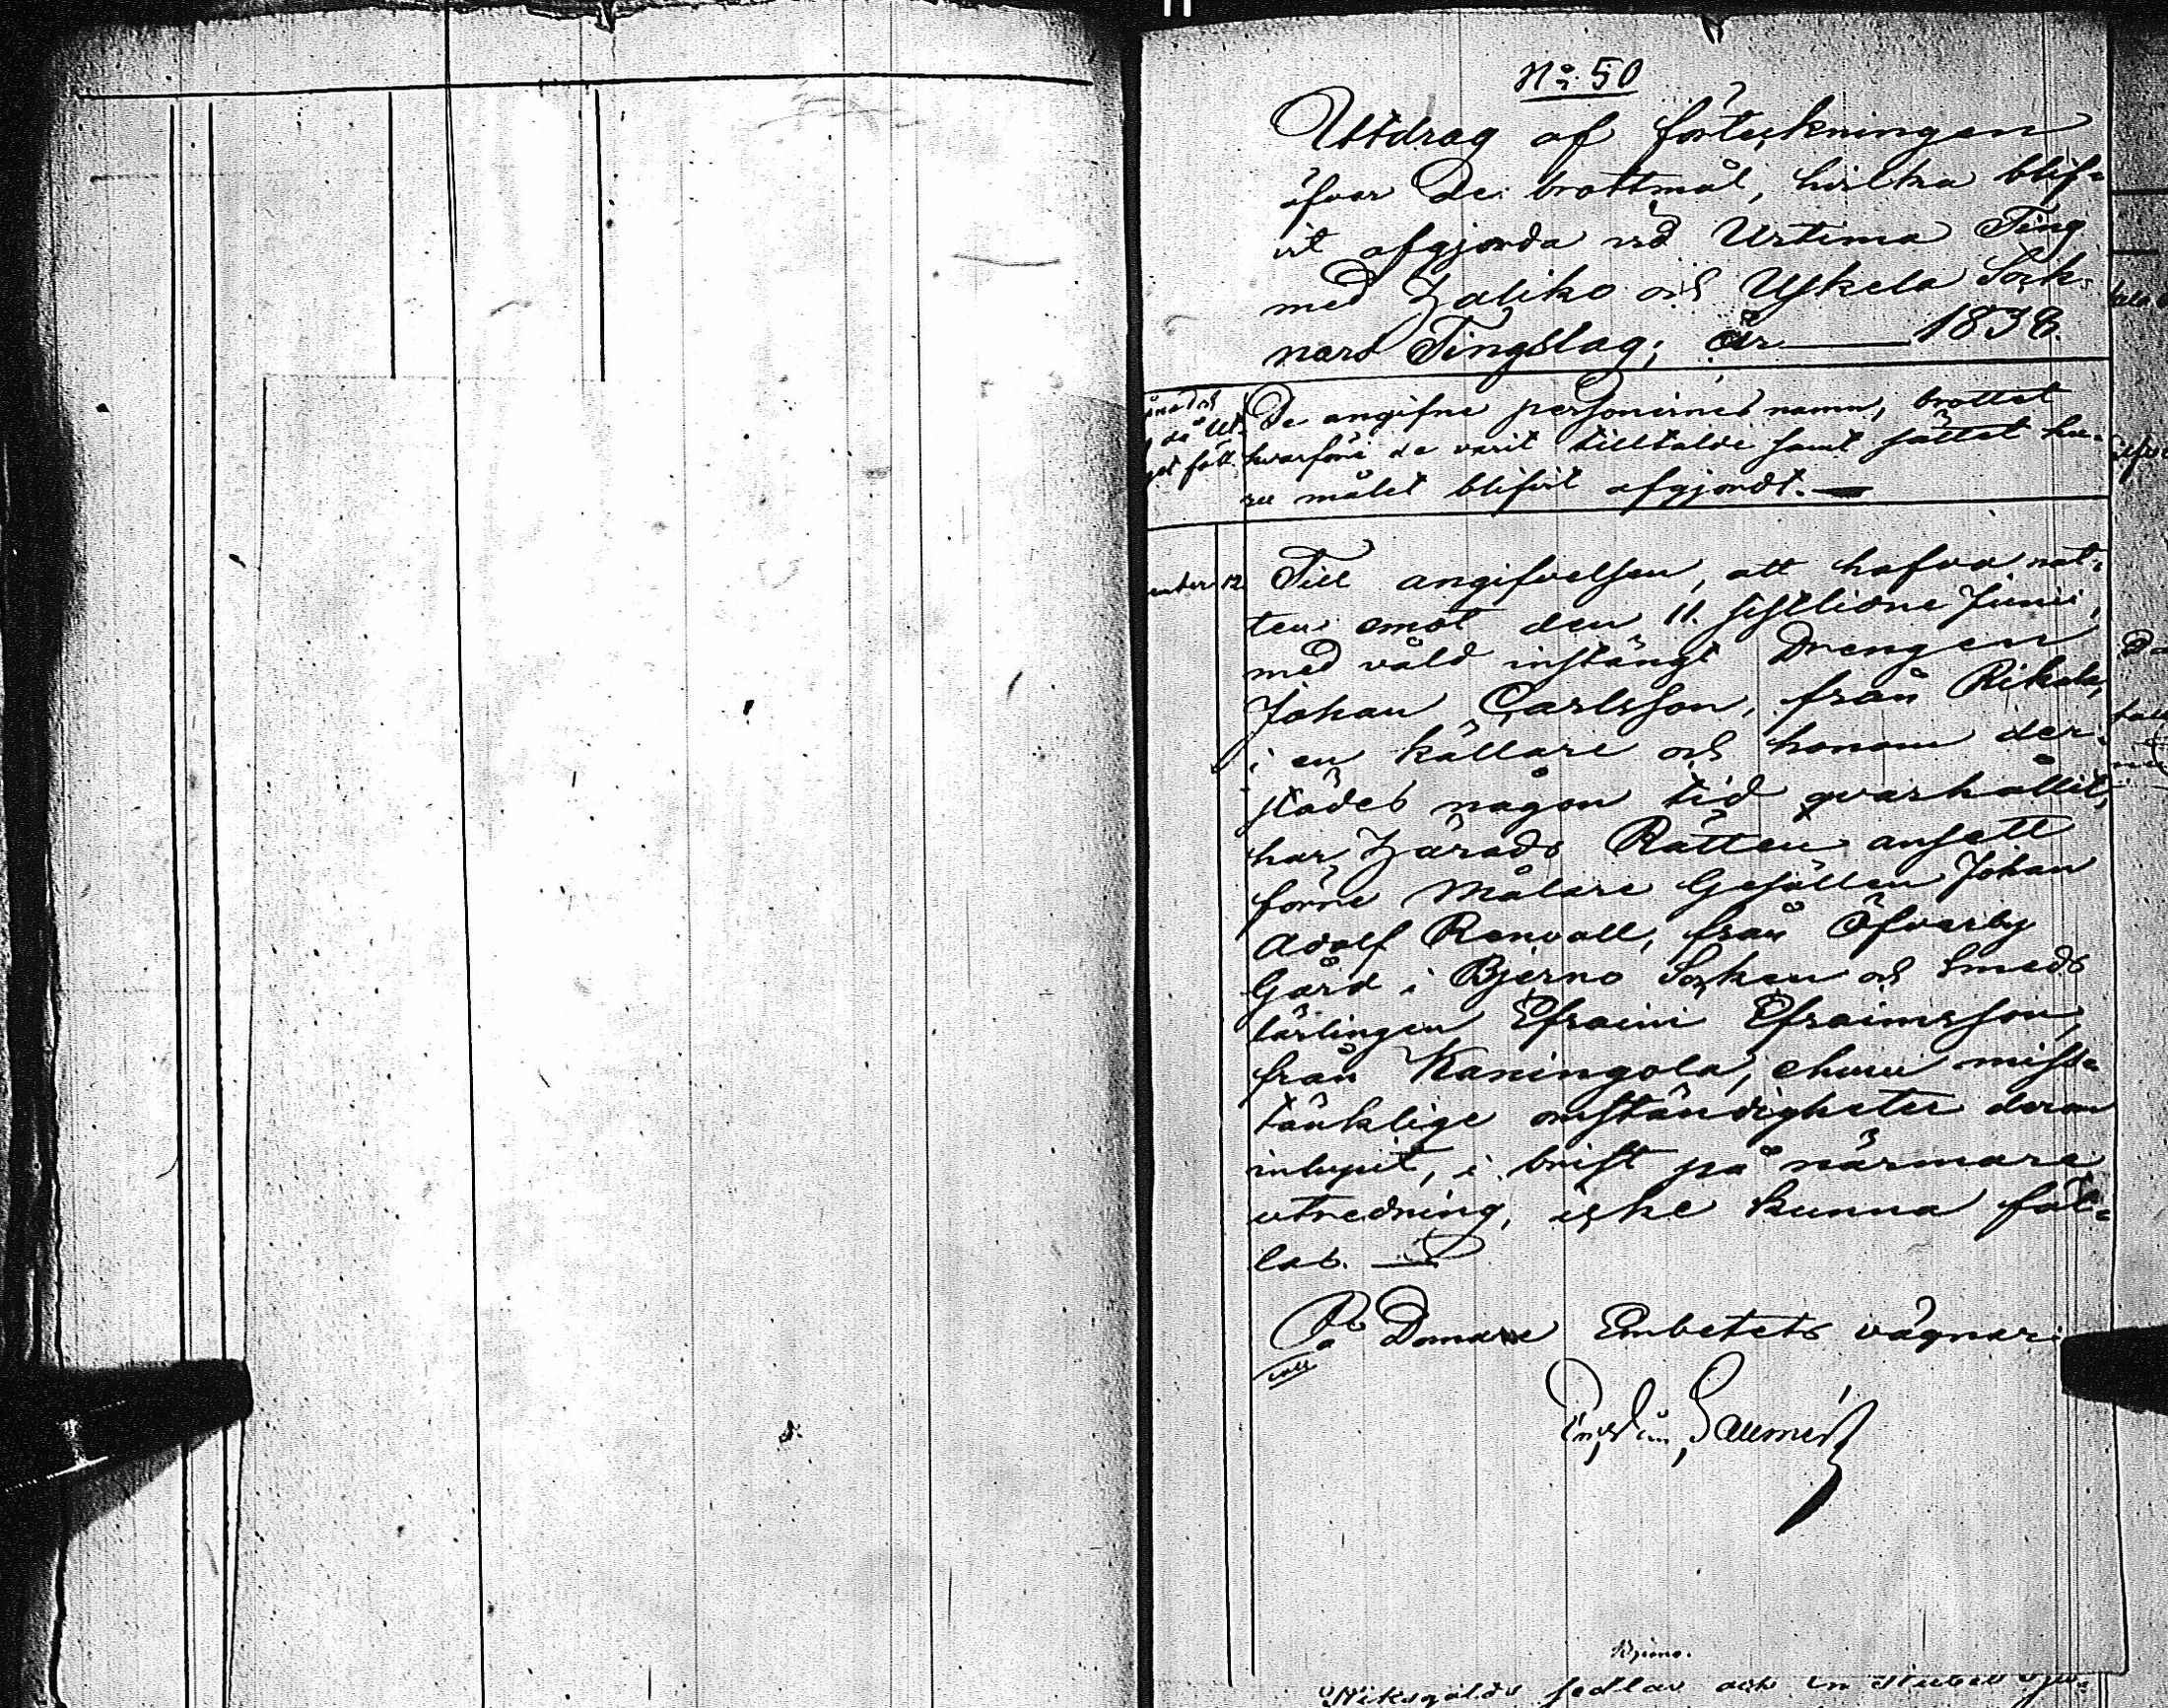 No 50
Utdrag af förteckningen
öfver de brottmål, hvilka blif-
vit afgjorda vid Urtima Ting
med Haliko och Uskela Sock-
nars Tingslag; År 1838.
De angifne personernes namn, brottet
hvarföre de varit tilltalde samt sättet hu-
ru målet blifvit afgjordt.
12 Till angifvelsen, att hafva nat-
ten emot den 11. sistlidne Junii,
med våld instängt Drengen
Johan Carlsson, från Rikala,
i en källare och honom der-
städes någon tid qvarhållit,
har Härads Rätten ansett
förre Målare Gesällen Johan
Adolf Renvall, från Öfverby
Gård i Bjerno Socken och Smeds
lärlingen Efraim Efraimsson,
från Kaningola, ehuru miss-
tänklige omständigheter derom
inlupit, i brist på närmare
utredning, icke kunna fäl-
las.
På Domare Embetets vägnar:
Bjerno.
Riksgälds sedlar och en